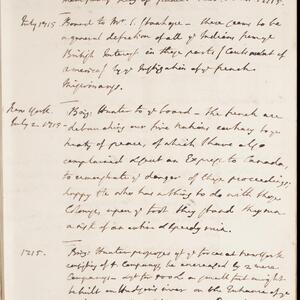 July 1715 Board to Mr. S. Stanhope - there seems to be
a general defection of all ye Indians from ye
British Interest in those parts (Continent of
America) by ye Instigation of ye french
Missionarys.
New York
July 2. 1715. Brig. Hunter to ye board - the french are
debauching our five Nations contrary to ye
treaty of peace, of which I have also
complained & sent an Express to Canada,
to ye danger of these proceedings,
happy He who has nothing to do with these
Colonys, upon ye foot they stand they run
a risk of an entire & speedy ruin.
1715. Brig. Hunter proposes yt ye forces at New York
consisting of 4 Companys, be encreased by 2 more
Companys - yt for £ 1000 a small fort might
be built on Hudsons river on the Entrance of ye